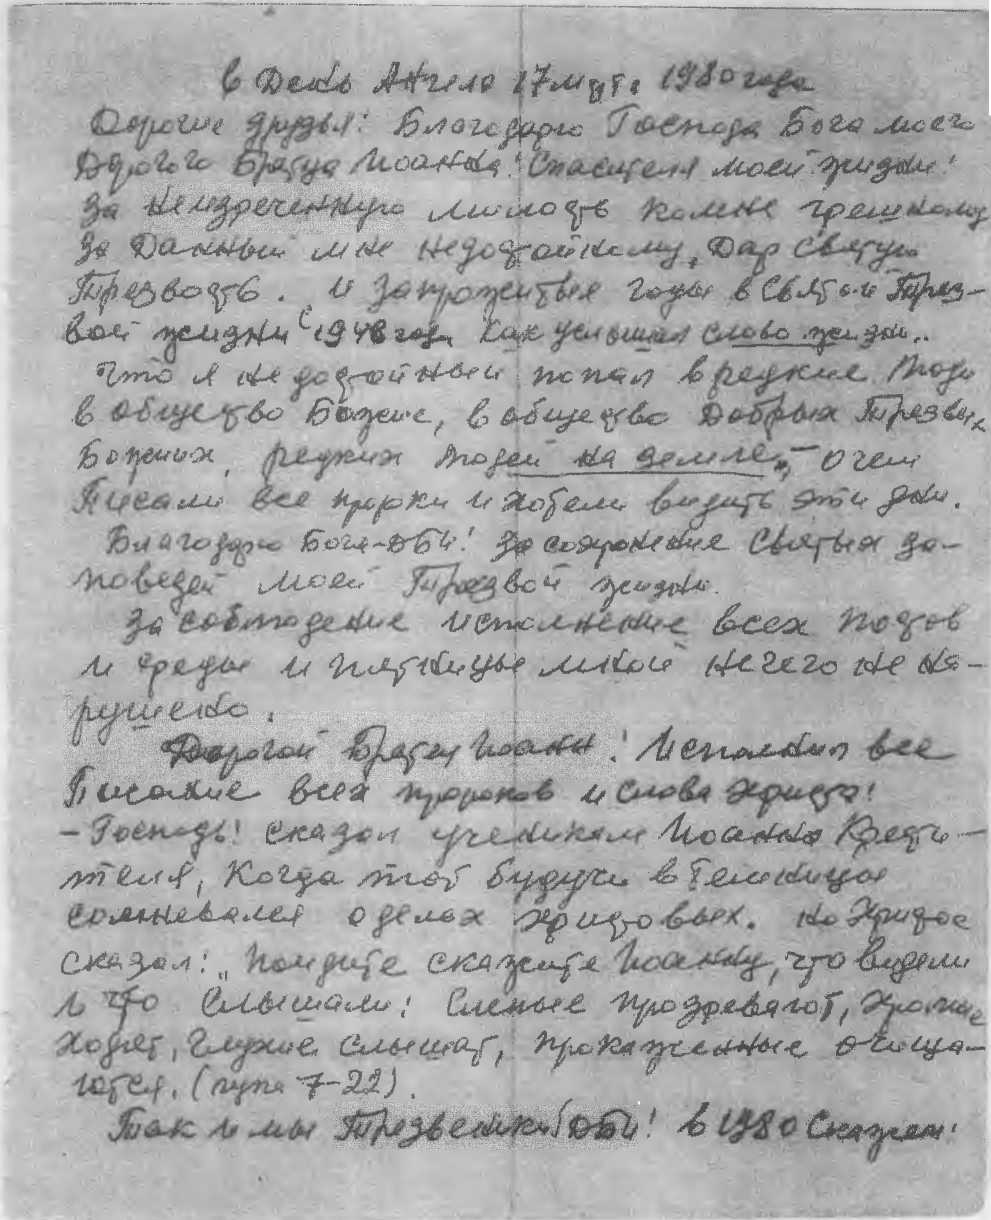 в День Ангела 17 марта 1980 года
Дорогие друзья! Благодарю Господа Бога моего
Дорогого Братца Иоанна! Спасителя моей жизни!
За неизреченную милость ко мне грешному
За Данный мне недостойному, Дар Святую
Трезвость. И за прожитые годы в Святой Трез-
вой жизни с 1948 года как услышал слово жизни..
что я недостойный попал в редкие люди
в общество Божие, в общество Добрых Трезвых
Божиих, редких людей на земле", – о чем
Писали все пророки и хотели видеть эти дни.
Благодарю Бога-ДБИ! За сохранение Святых за-
поведей моей Трезвой жизни.
За соблюдение исполнение всех постов
и среды и пятницы мной нечего не на-
рушено.
Дорогой Братец Иоанн! Исполнил все
Писание всех пророков и слова Христа!
– Господь! сказал ученикам Иоанна Крести-
теля, Когда тот будучи в темнице
сомневался о делах Христовых. но Христос
сказал: „Пойдите скажите Иоанну, что видели
и что слышали: Слепые прозревают, Хромые
Ходят, Глухие слышат, прокаженные очища-
ются. (лука 7-22).
Так и мы Трезвенники ДБИ! в 1980 Скажем!